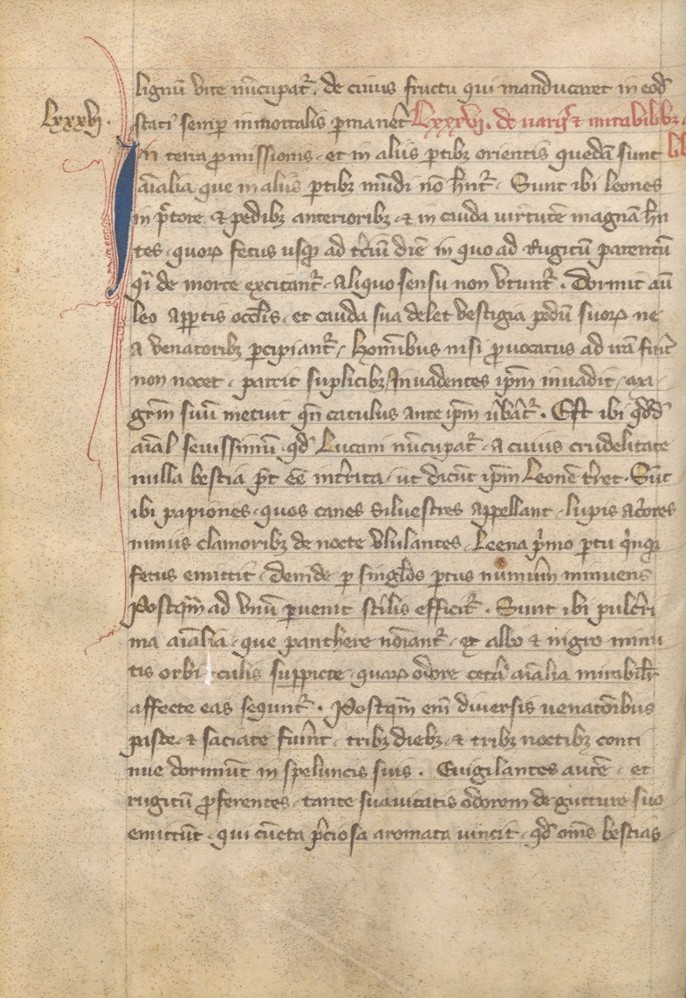 lignū vite nūcupat᷑. de cuius fructu qui manducaret in eod̄
lxxxvj. statu semper inmortalis ꝑmanet᷑ Lxxxvi. de uarijs et mirabilibꝫ
In terra ꝓmissionis. et in aliis ꝑtibꝫ orientis quedā sunt
aīalia que in aliis ꝑtibꝫ mūdi nō hn̄t᷑. Sunt ibi leones
in pectore & pedibꝫ anterioribꝫ & in cauda virtutē magnā hn̄
tes. quoꝝ fetus usqꝫ ad tciū diē in quo ad rugitū parentū
qͥ de morte excitant᷑. aliquo sensu non vtunt᷑. Dormit aū
leo apꝑtis oculis. et cauda sua delet vestigia pedū suoꝝ ne
a venatoribꝫ ꝑcipiant᷑. Hominibus nisi ꝓuocatus ad irā fuit᷑
non nocet. parcit suplicibꝫ Inuadentes ipm̄ inuadit.
suū metuit qn̄ catulus ante ipm̄ ūbat᷑. Est ibi qddā
aīal seuissimū. qd̄ Lucani nūcupat᷑. a cuius crudelitate
nulla bestia pt̄ eē int᷑rita. ut dicūt ipm̄ Leonē t᷑ret. Sūt
ibi papiones. quos canes siluestres appellant. lupis ac᷑ores
nimiis clamoribꝫ de nocte vlulantes. Leena p̄mo ꝑtu qͥnqꝫ
fetus emittit. deinde ꝑ singlos ꝑtus nūmum minuens
Postqm̄ ad vnū ꝑuenit st᷑ilis efficit᷑. Sunt ibi pulcri
ma aīalia. que panthere noīant᷑. ex albo & nigro minu
tis orbiculis suppicte. quaꝝ odore cetā aīalia mirabilit᷑
affecte eas sequnt᷑. Postqm̄ em̄ diuersis uenatōibus
paste & saciate fuīnt. tribꝫ diebꝫ & tribꝫ noctibꝫ conti
nue dormiūt in speluncis suis. Euigilantes autē. et
rugitū ꝓferentes. tante suauitatis odorem de gutture suo
emittūt. qui cūcta p̄ciosa aromata uincit. qd̄ oms̄ bestias